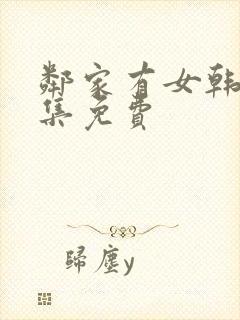 鄰家有女韩
集免費
歸塵y